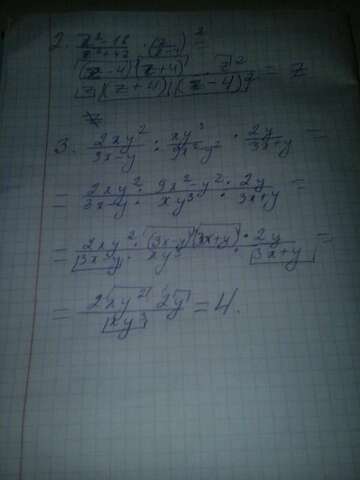 2. z²-16 / z²+4z · (z / z-4)² =
(z-4)(z+4) z² / z(z+4)(z-4)² = z
3. 2xy² / 3x-y : xy³ / 9x²-y² · 2y / 3x+y =
= 2xy² / 3x-y · 9x²-y² / xy³ · 2y / 3x+y =
= 2xy² / 3x-y · (3x-y)(3x+y) / xy³ · 2y / 3x+y =
= 2xy² 2y / xy³ = 4.